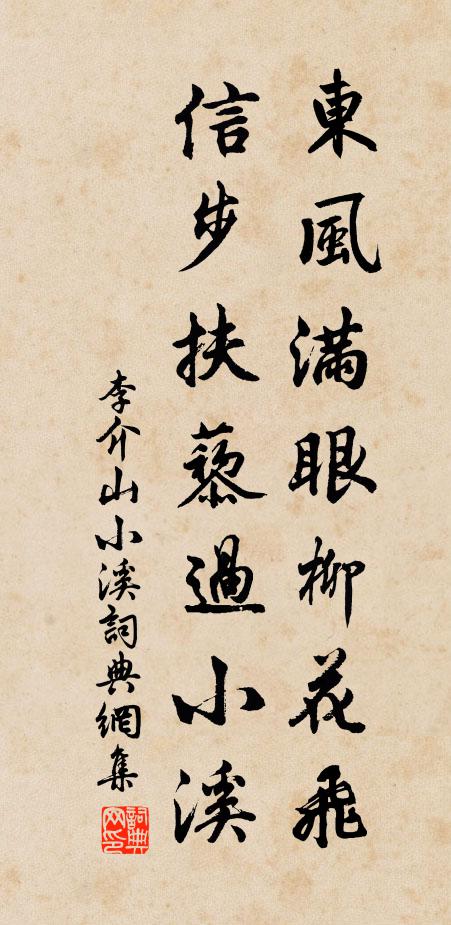 東風滿眼柳花飛
信步扶藜過小溪
李介山小溪詞典網集
詞典網印